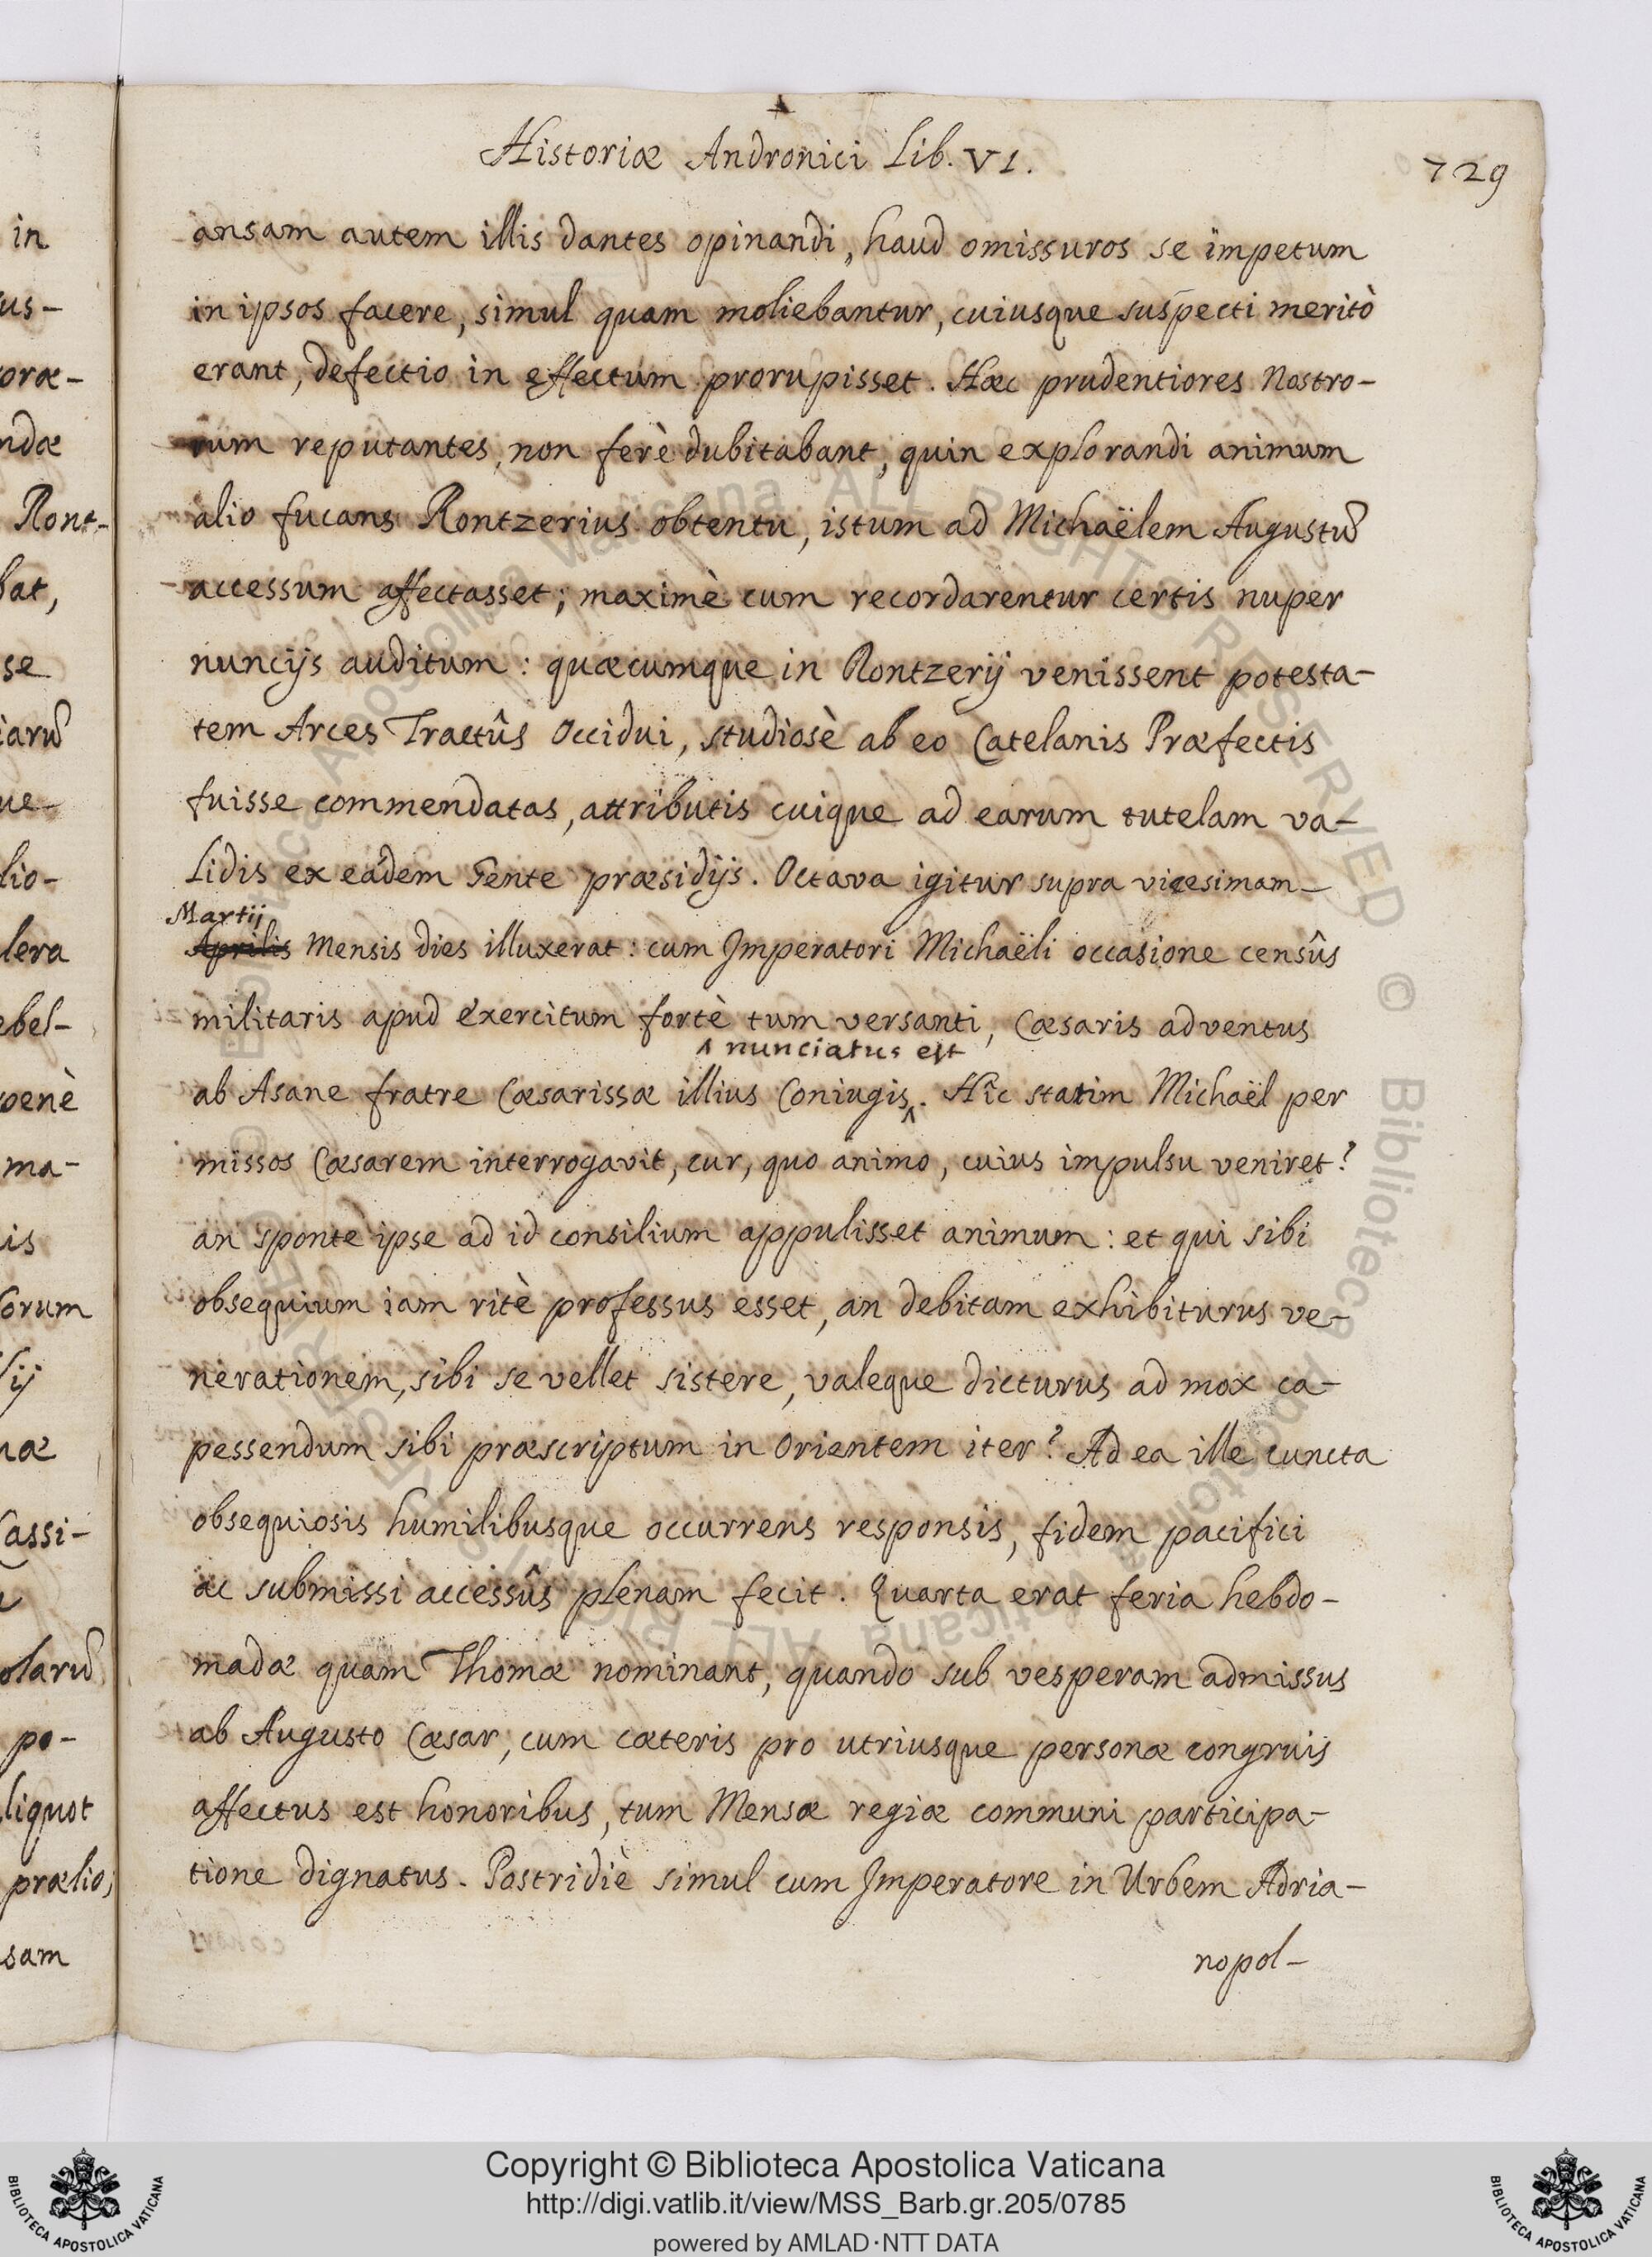 Historiæ Andronici Lib. VI.
729
ansam autem illis dantes opinandi, haud omissuros se impetum
in ipsos facere, simul quam moliebantur, cuiusque suspecti meritò
erant, defectio in effectum prorupisset. Hæc prudentiores Nostro-
rum reputantes, non ferè dubitabant, quin explorandi animum
alio fucans Rontzerius obtentu, istum ad Michaëlem Augustũ
accessum affectasset; maximè cum recordarentur certis nuper
nuncijs auditum: quæcumque in Rontzerij venissent potesta-
tem Arces Tractûs Occidui, studiosè ab eo Catelanis Præfectis
fuisse commendatas, attributis cuique ad earum tutelam va-
lidis ex eâdem Gente præsidijs. Octava igitur supra vicesimam
Martij
Aprilis Mensis dies illuxerat: cum Imperatori Michaëli occasione censûs
militaris apud exercitum fortè tum versanti, Cæsaris adventus
^ nunciatus est
ab Asane fratre Cæsarissæ illius Coniugis^. Hîc statim Michaël per
missos Cæsarem interrogavit, cur, quo animo, cuius impulsu veniret?
an sponte ipse ad id consilium appulisset animum: et qui sibi
obsequium iam ritè professus esset, an debitam exhibiturus ve-
nerationem, sibi se vellet sistere, valeque dicturus ad mox ca-
pessendum sibi præscriptum in Orientem iter? Ad ea ille cuncta
obsequiosis humilibusque occurrens responsis, fidem pacifici
ac submissi accessûs plenam fecit. Quarta erat feria hebdo-
madæ quam Thomæ nominant, quando sub vesperam admissus
ab Augusto Cæsar, cum cæteris pro utriusque personæ congruis
affectus est honoribus, tum Mensæ regiæ communi participa-
tione dignatus. Postridiè simul cum Imperatore in Urbem Adria-
nopol-
in
us-
oræ-
ndæ
Ront-
bat,
se
iarũ
ue-
lio-
lera
ebel-
penè
ma-
is
orum
ij
næ
Cassi-
olarũ
po-
liquot
prælio;
sam
Copyright © Biblioteca Apostolica Vaticana
http://digi.vatlib.it/view/MSS_Barb.gr.205/0785
powered by AMLAD·NTT DATA
BIBLIOTECA APOSTOLICA VATICANA
BIBLIOTECA APOSTOLICA VATICANA